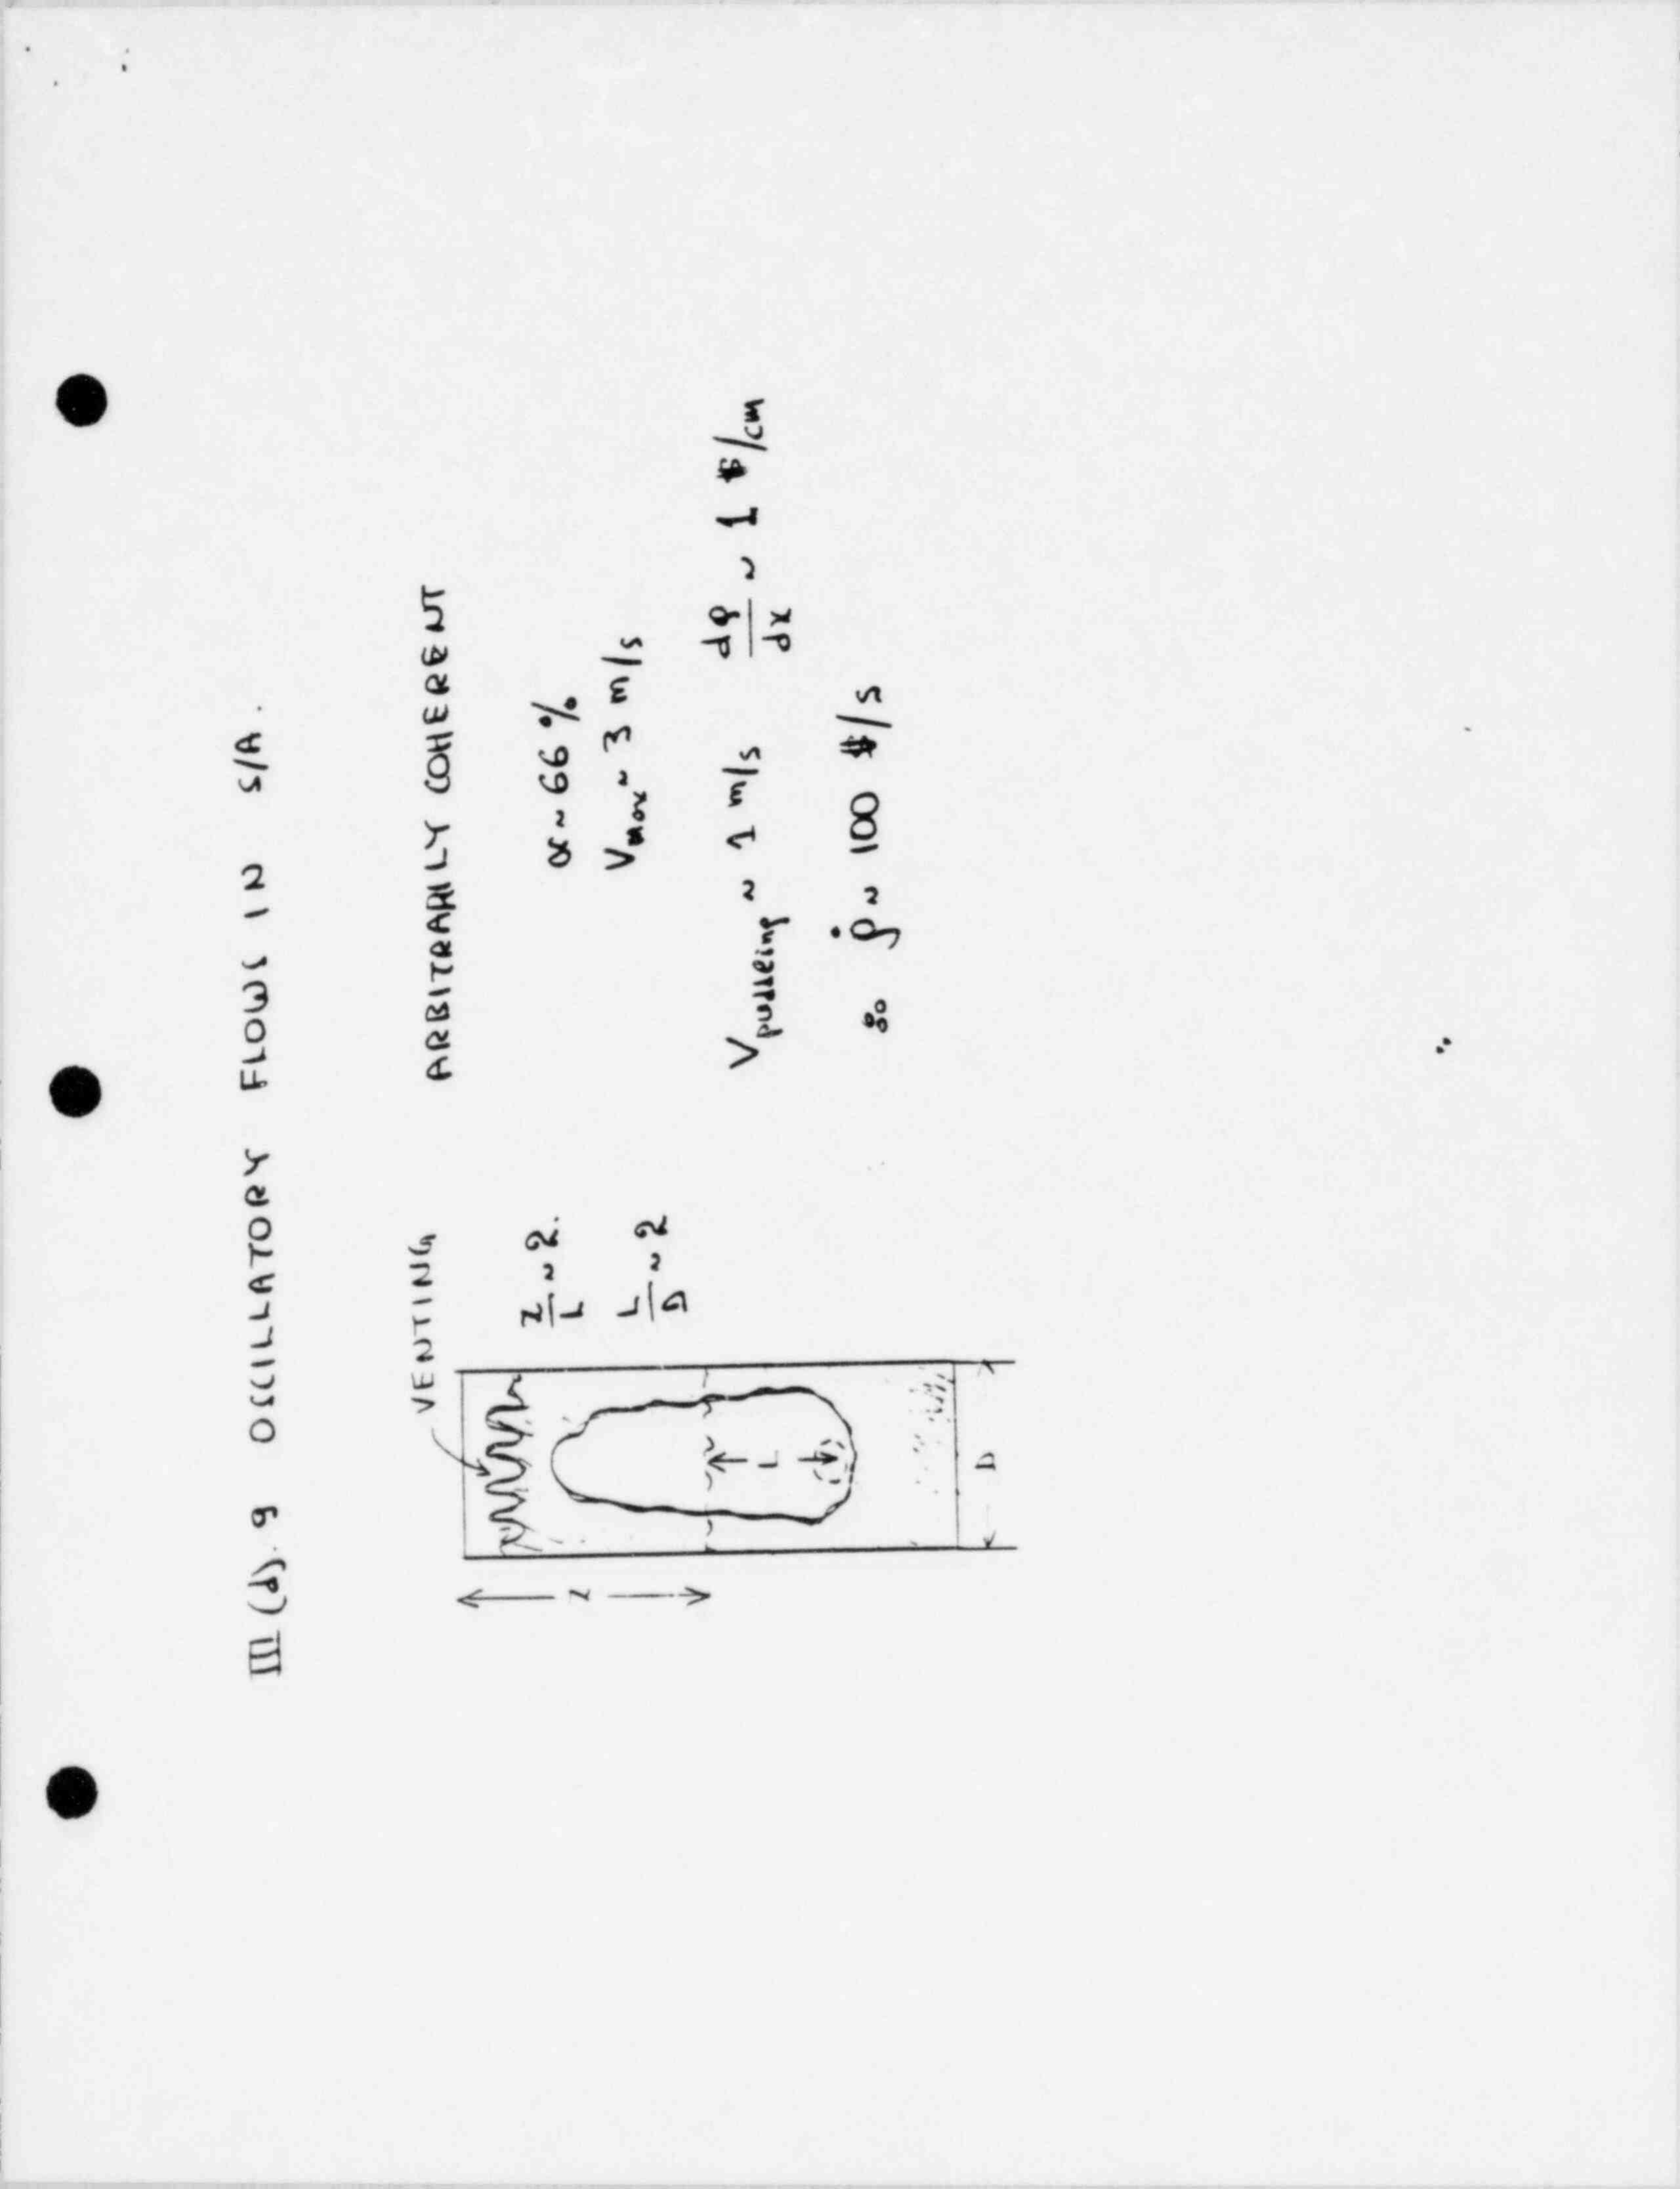 III (d). 9 OSCILLATORY FLOWS IN S/A.
VENTING
Z/L ~ 2.
L/D ~ 2
Z
L
D
ARBITRARILY COHERENT
α ~ 66 %
Vmax ~ 3 m/s
Vpuddling ~ 1 m/s dρ/dx ~ 1 $/cm
∴ ρ̇ ~ 100 $/s